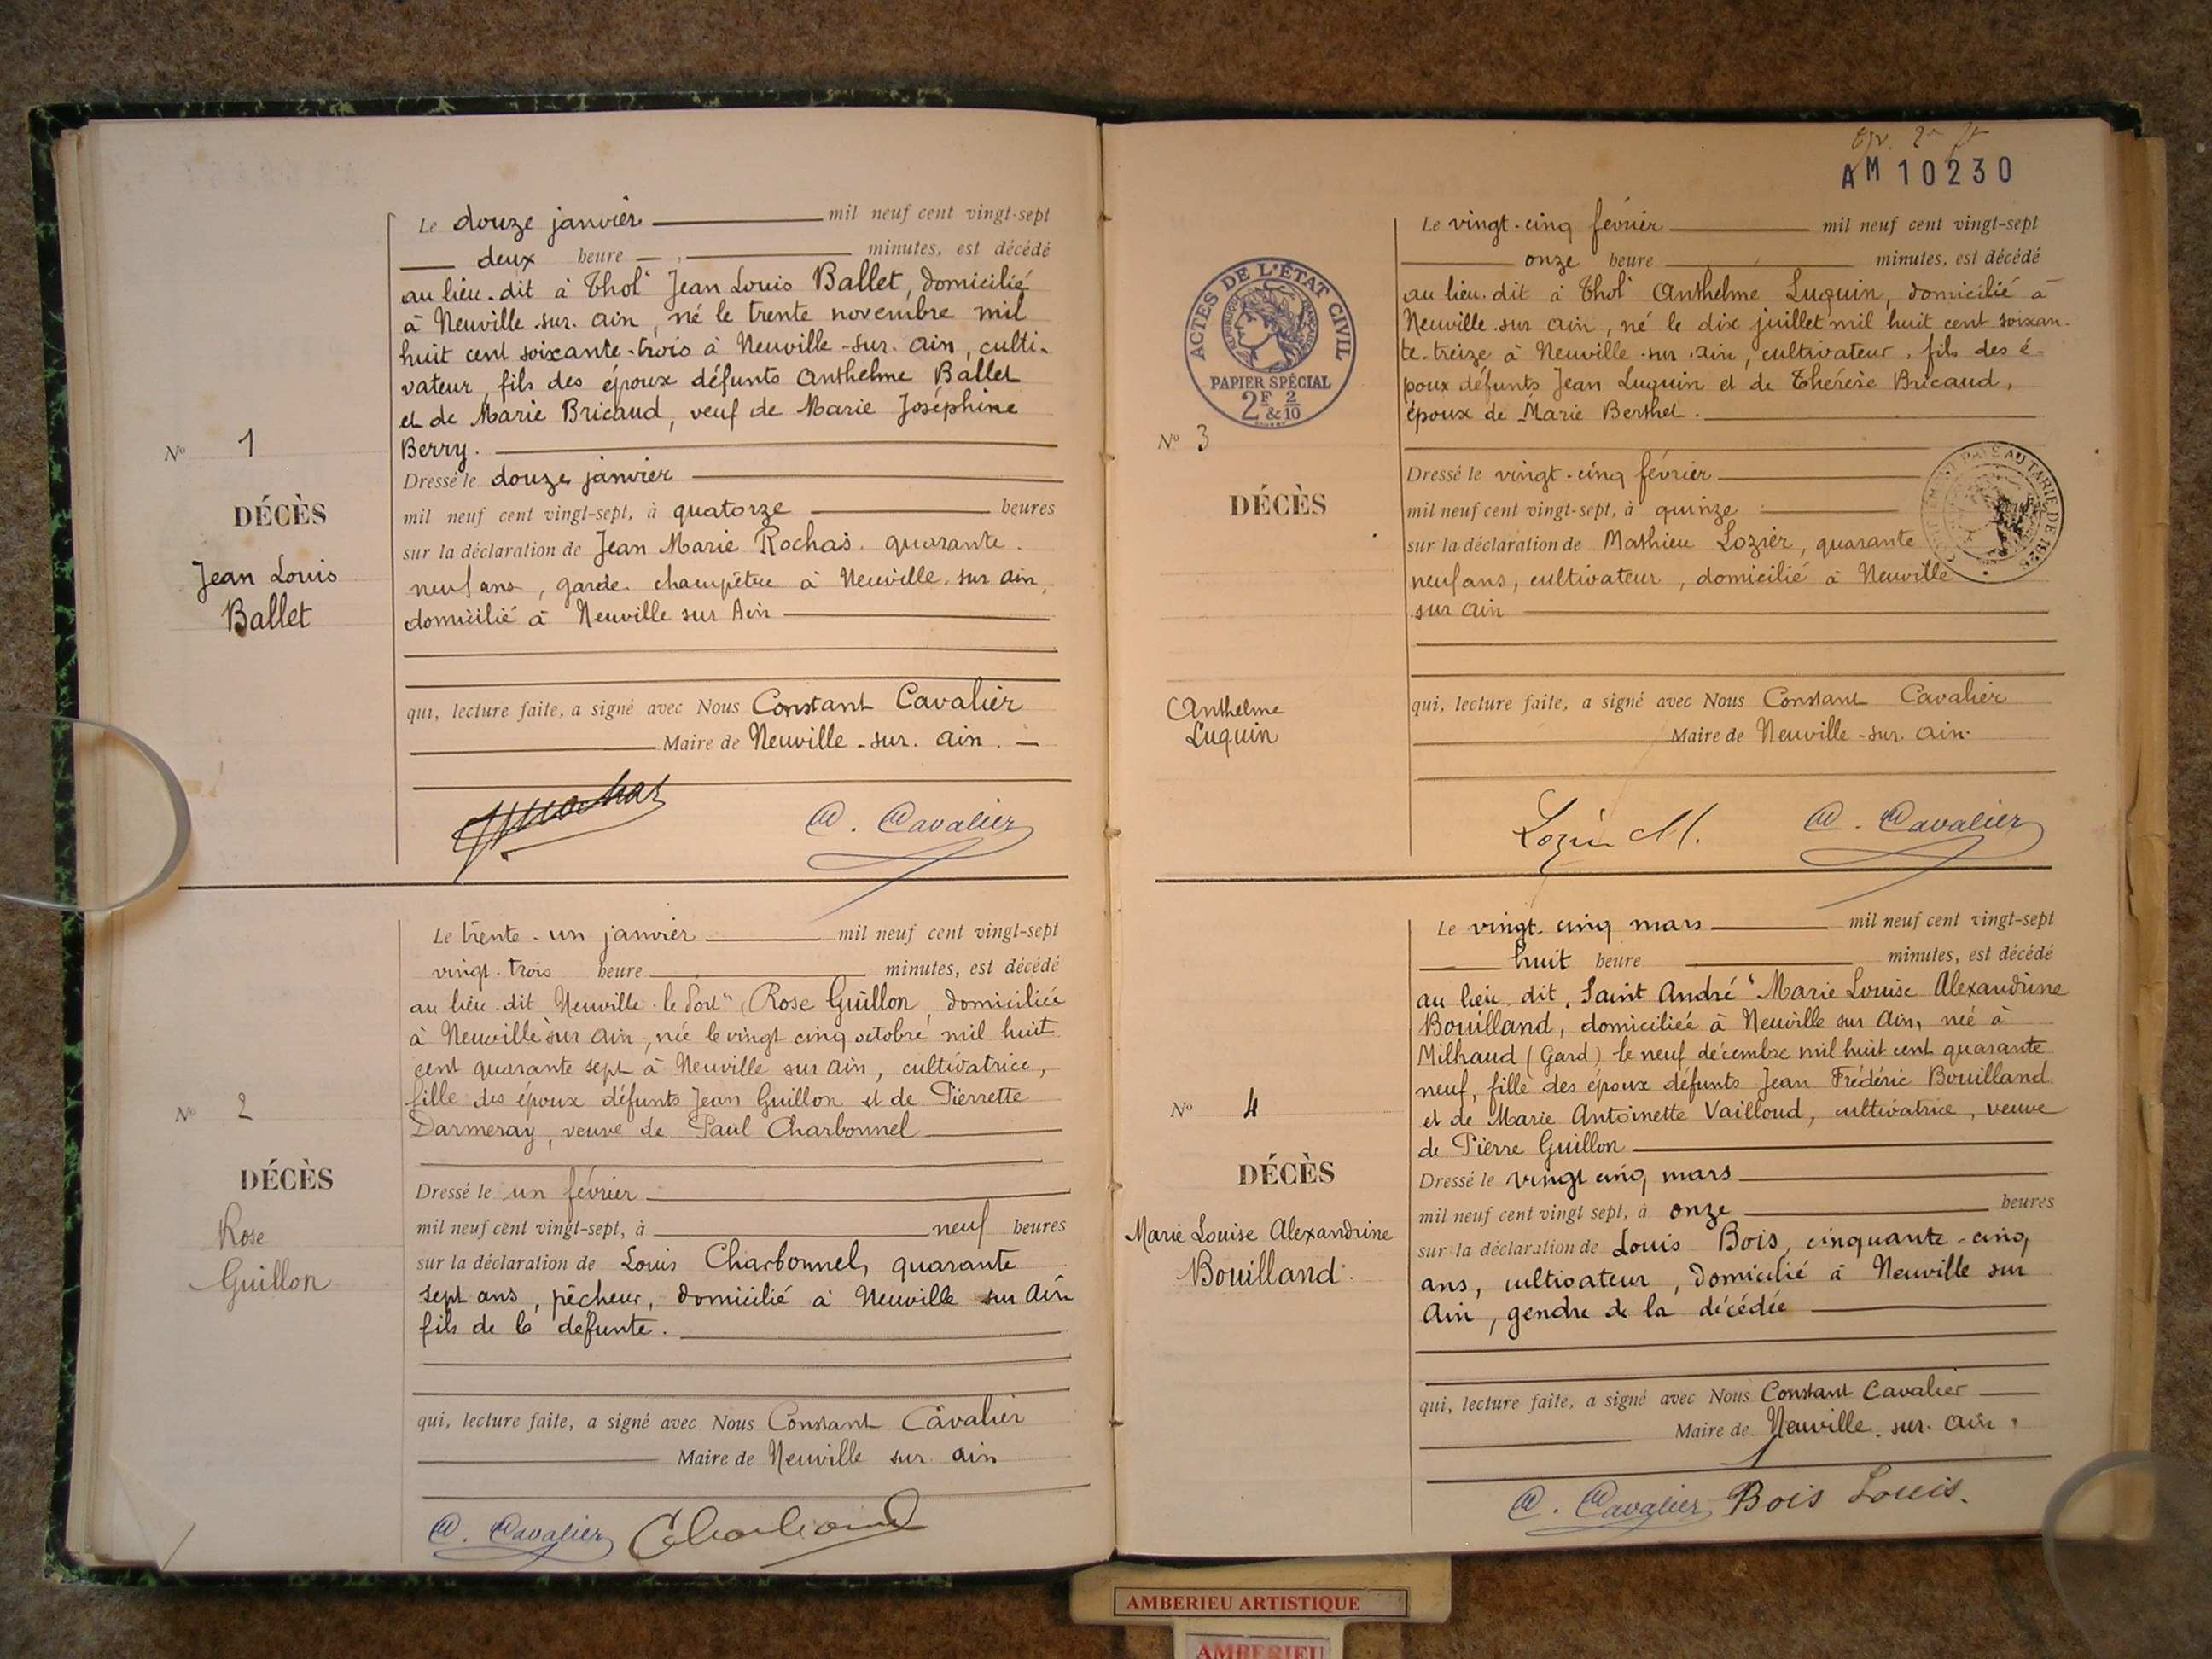 Le douze janvier mil neuf cent vingt-sept
deux heure minutes, est décédé
au lieu-dit à Thol" Jean Louis Ballet, domicilié
à Neuville-sur-Ain, né le trente novembre mil
huit cent soixante-trois à Neuville-sur-Ain, culti-
vateur, fils des époux défunts Anthelme Ballet
et de Marie Bricaud, veuf de Marie Joséphine
Berry.
Nº 1
DÉCÈS
Jean Louis
Ballet
Dressé le douze janvier
mil neuf cent vingt-sept, à quatorze heures
sur la déclaration de Jean Marie Rochas, quarante-
neuf ans, garde-champêtre à Neuville-sur-Ain,
domicilié à Neuville sur Ain
qui, lecture faite, a signé avec Nous Constant Cavalier
Maire de Neuville-sur-Ain.
C. Cavalier
Le trente-un janvier mil neuf cent vingt-sept
vingt-trois heure minutes, est décédé
au lieu-dit Neuville-le-Port" Rose Guillon, domiciliée
à Neuville sur Ain, née le vingt cinq octobre mil huit
cent quarante sept à Neuville sur Ain, cultivatrice,
fille des époux défunts Jean Guillon et de Pierrette
Darmeray, veuve de Paul Charbonnel
Nº 2
DÉCÈS
Rose
Guillon
Dressé le un février
mil neuf cent vingt-sept, à neuf heures
sur la déclaration de Louis Charbonnel, quarante
sept ans, pêcheur, domicilié à Neuville sur Ain
fils de la défunte.
qui, lecture faite, a signé avec Nous Constant Cavalier
Maire de Neuville sur Ain
C. Cavalier Charbonnel
AM 10230
Le vingt-cinq février mil neuf cent vingt-sept
onze heure minutes, est décédé
au lieu-dit à Thol" Anthelme Luquin, domicilié à
Neuville-sur Ain, né le dix juillet mil huit cent soixan-
te-treize à Neuville-sur-Ain, cultivateur, fils des é-
poux défunts Jean Luquin et de Thérèse Bricaud,
époux de Marie Berthet.
ACTES DE L'ÉTAT CIVIL
PAPIER SPÉCIAL
2F 2
& 10
Nº 3
DÉCÈS
Anthelme
Luquin
Dressé le vingt-cinq février
mil neuf cent vingt-sept, à quinze
sur la déclaration de Mathieu Lozier, quarante
neuf ans, cultivateur, domicilié à Neuville
sur Ain
qui, lecture faite, a signé avec Nous Constant Cavalier
Maire de Neuville-sur-Ain.
Lozier M. C. Cavalier
Le vingt-cinq mars mil neuf cent vingt-sept
huit heure minutes, est décédé
au lieu-dit, Saint André" Marie Louise Alexandrine
Bouilland, domiciliée à Neuville sur Ain, née à
Milhaud (Gard) le neuf décembre mil huit cent quarante
neuf, fille des époux défunts Jean Frédéric Bouilland
et de Marie Antoinette Vailloud, cultivatrice, veuve
de Pierre Guillon
Nº 4
DÉCÈS
Marie Louise Alexandrine
Bouilland.
Dressé le vingt cinq mars
mil neuf cent vingt sept, à onze heures
sur la déclaration de Louis Bois, cinquante-cinq
ans, cultivateur, domicilié à Neuville sur
Ain, gendre de la décédée
qui, lecture faite, a signé avec Nous Constant Cavalier
Maire de Neuville-sur-Ain.
C. Cavalier Bois Louis.
AMBERIEU ARTISTIQUE
AMBERIEU